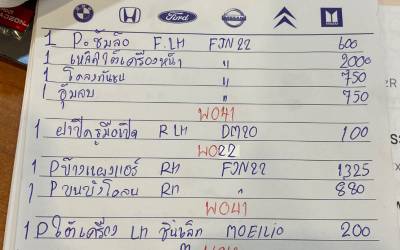 Ford NISSAN
1 P.ซุ้มล้อ F.LH FJN22 600
1 เหล็กใต้เครื่องหน้า " 2000
1 โครงกันชน " 750
1 " 750
W041
1 ฝาปิดรูมือเปิด R LH DM20 100
W022
1 P ข้างแผงแอร์ RH FJN22 1325
1 P RH " 880
W041
1 P ใต้เครื่อง LH ชิ้นเล็ก MOEILIO 200